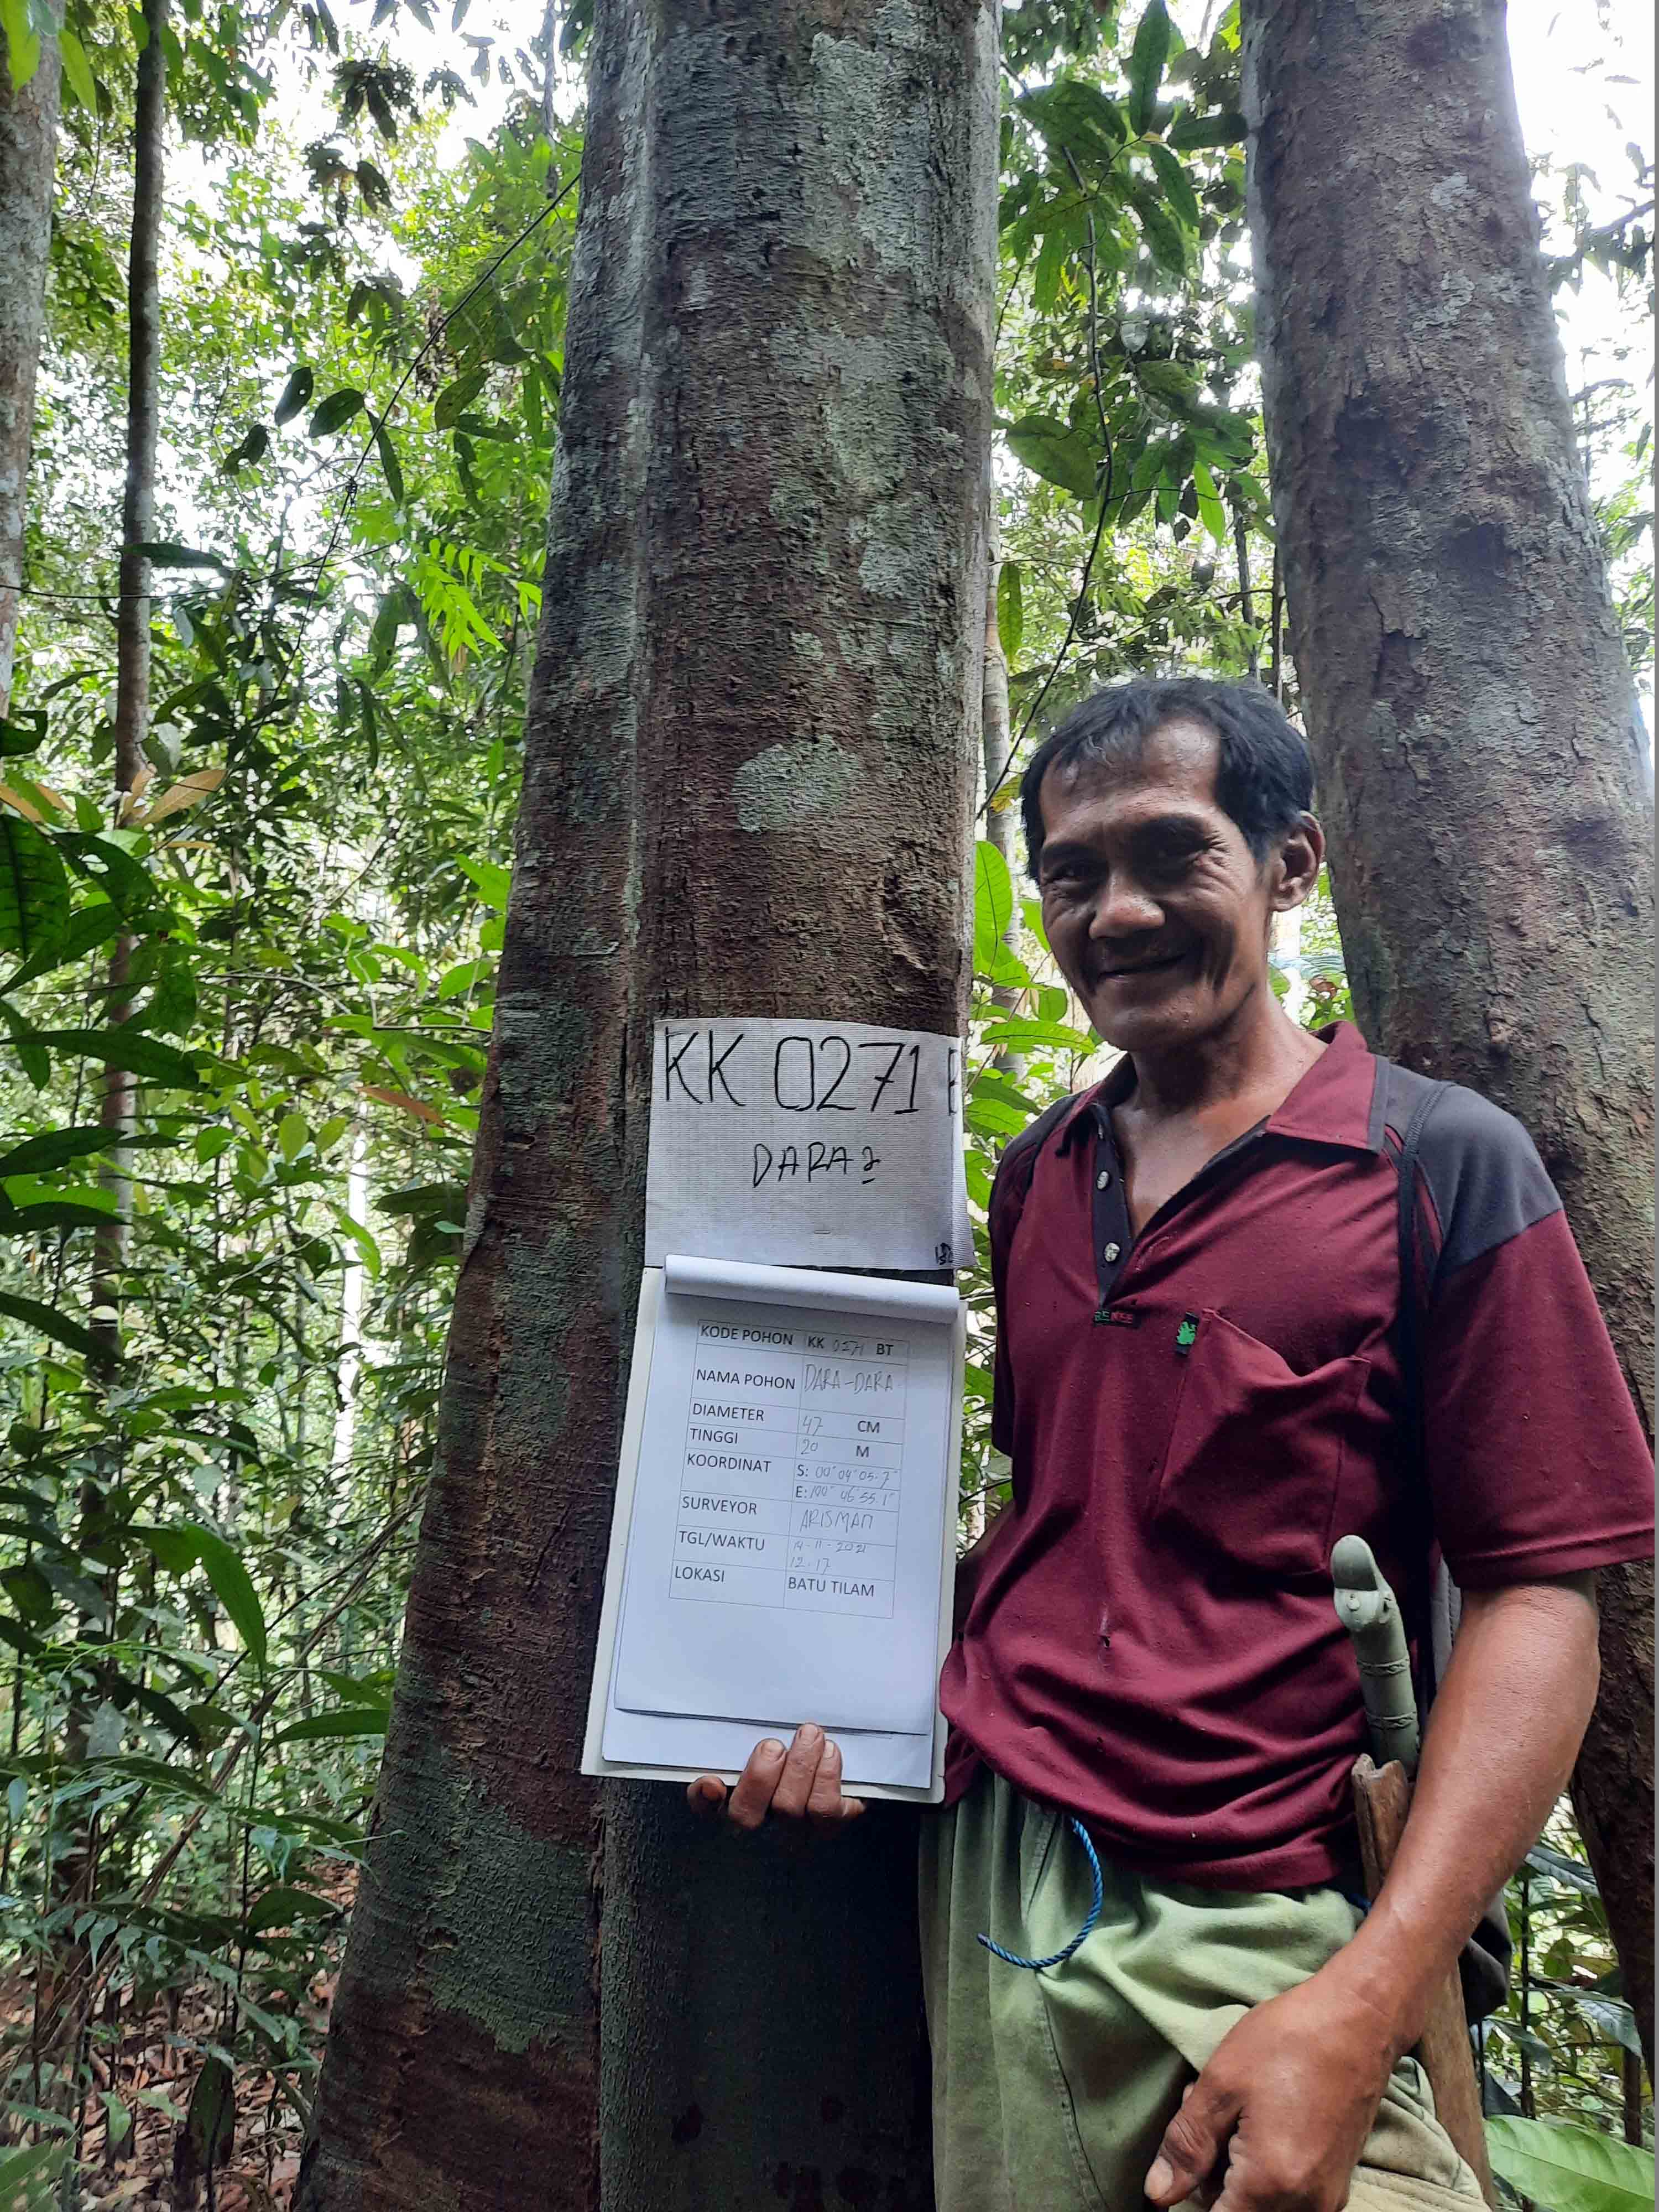 KK 0271 B
DARA2
KODE POHON KK 0271 BT
NAMA POHON DARA-DARA
DIAMETER 47 CM
TINGGI 20 M
KOORDINAT S: 00° 04' 05.7"
E: 100° 46' 55.1"
SURVEYOR ARISMAN
TGL/WAKTU 14-11-2021
12.17
LOKASI BATU TILAM